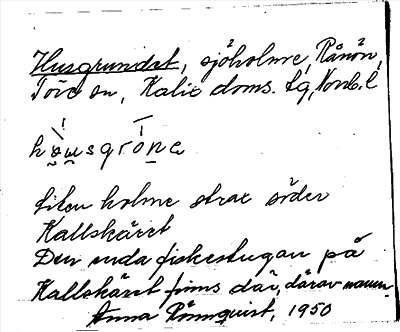 Husgrundet, sjöholme, Rånön,
Töre sn, Kalix doms. lg, Norrb. l
hɷusgrone
Liten holme strax söder
Kallskäret
Den enda fiskestugan på
Kallskäret finns där, därav namn
Anna Rönnquist, 1950